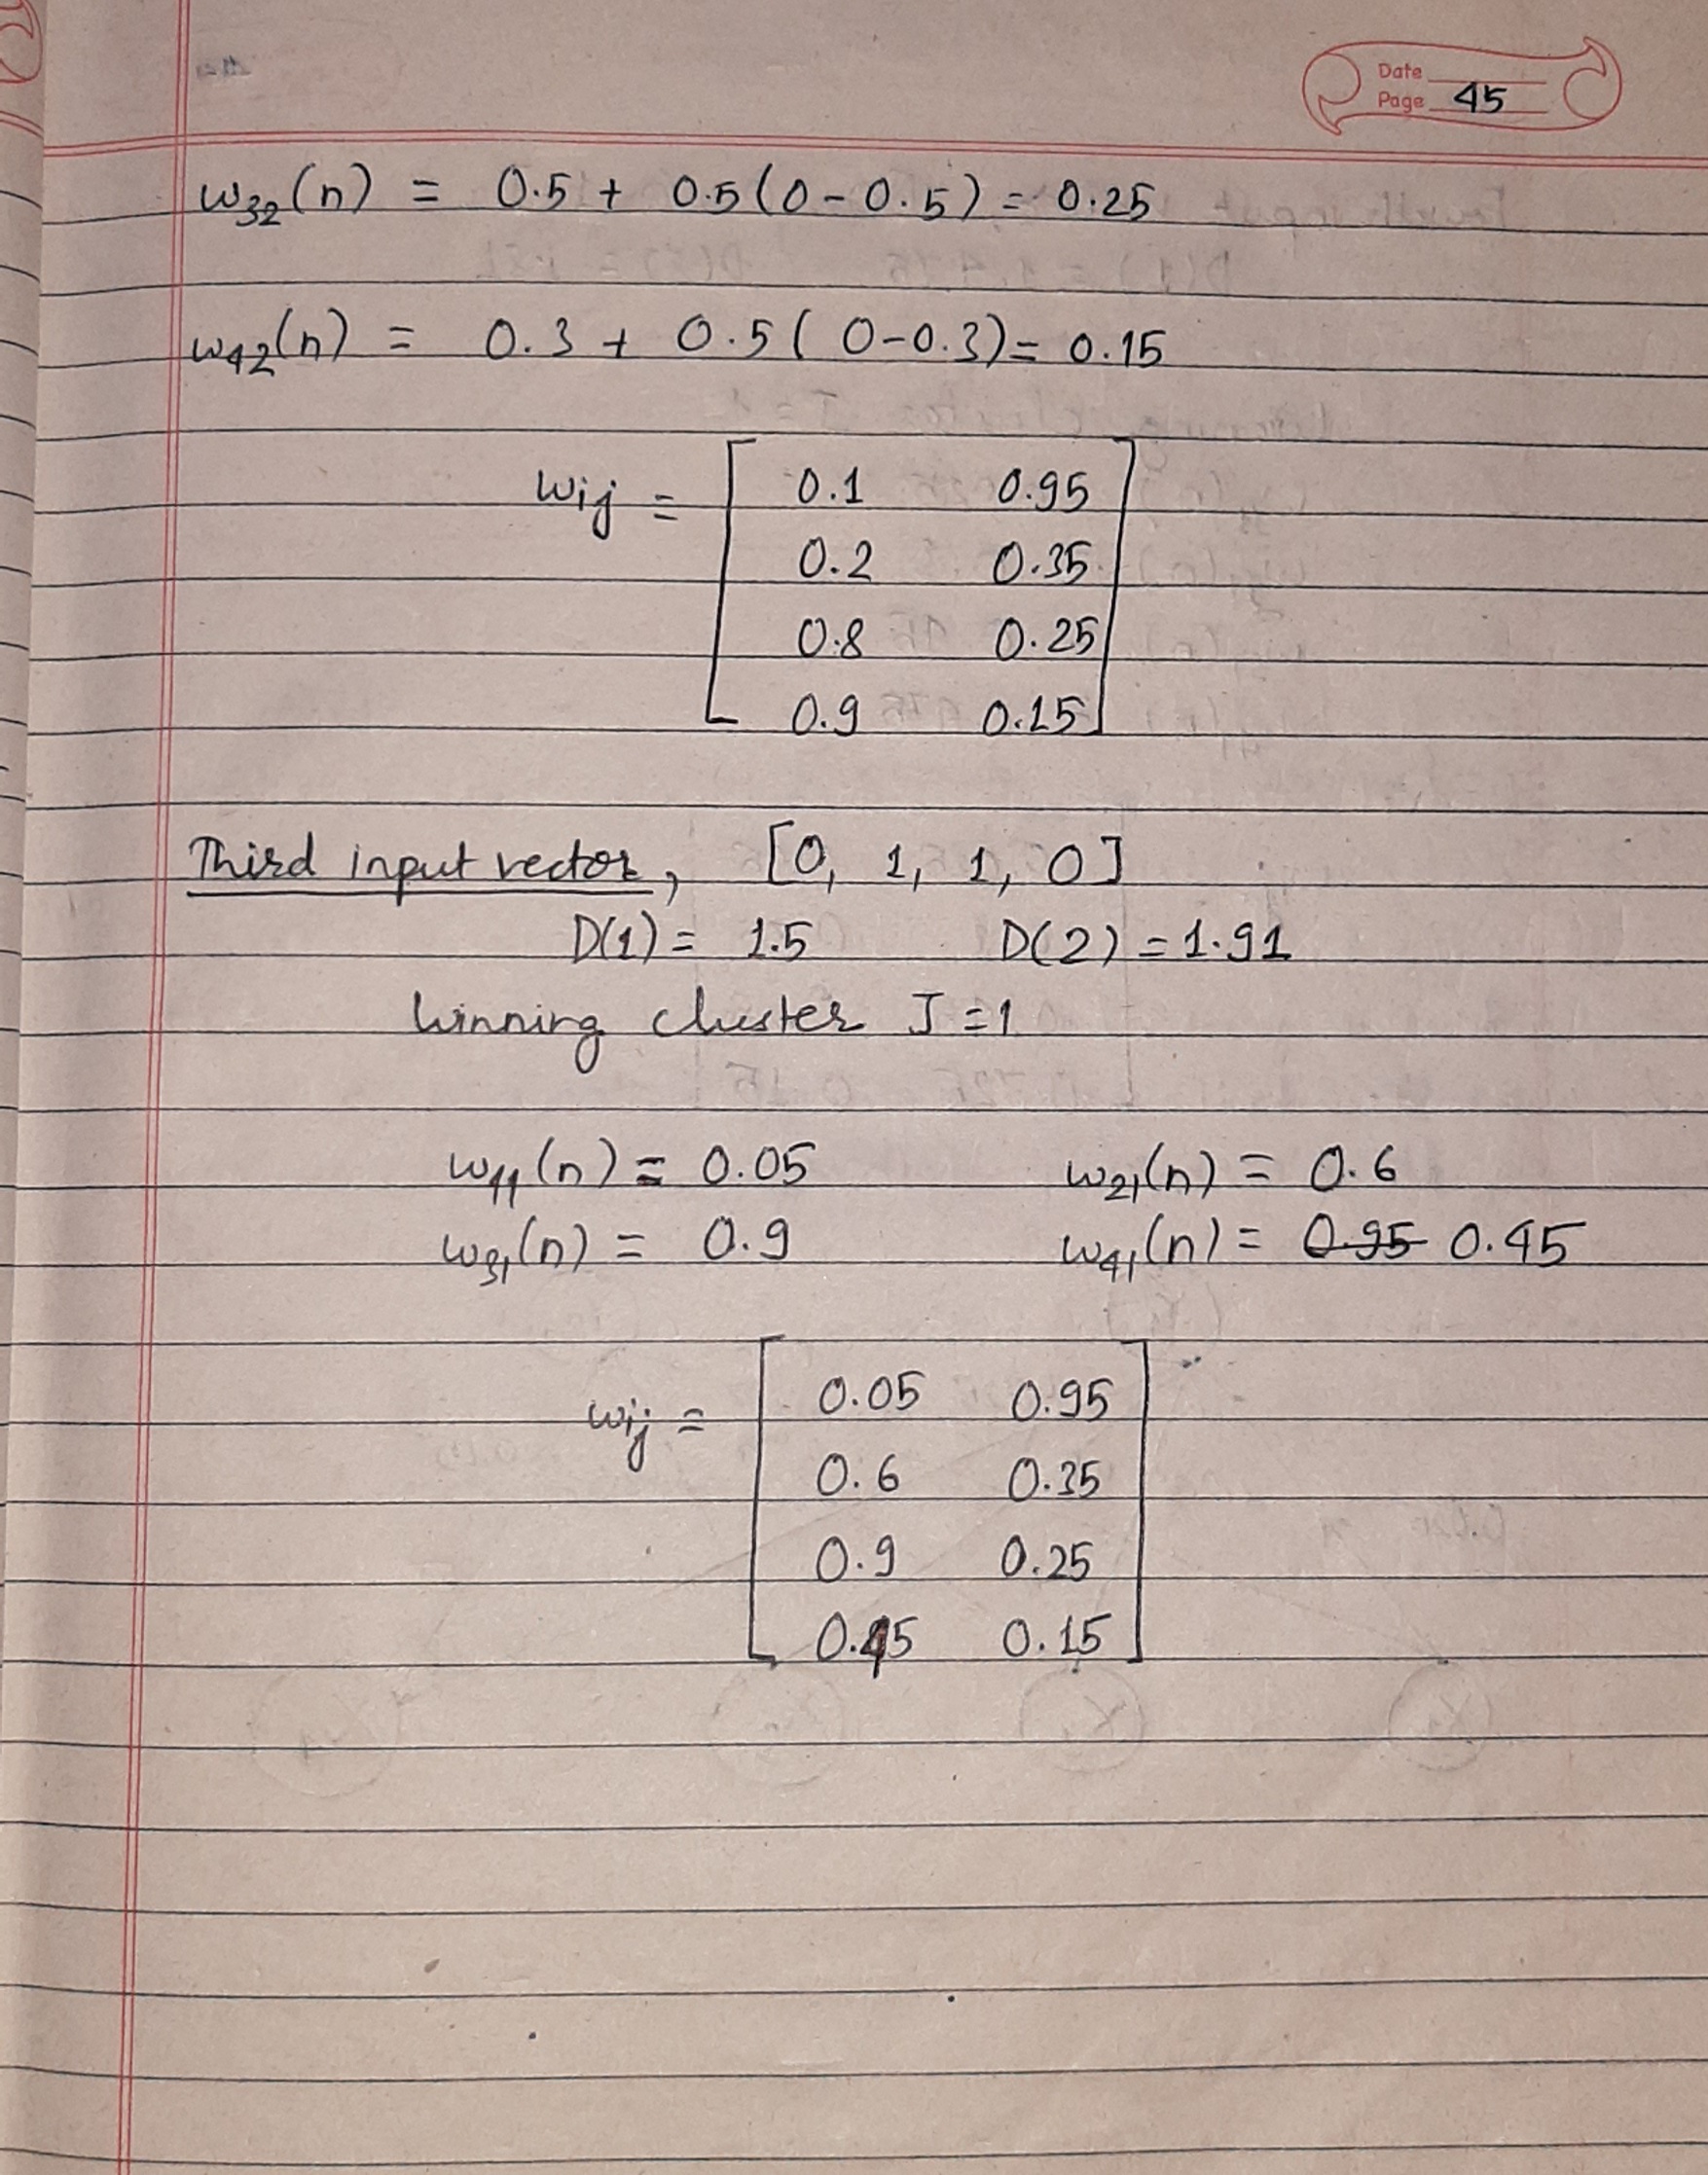 Date
Page 45
w32(n) = 0.5 + 0.5(0-0.5) = 0.25
w42(n) = 0.3 + 0.5(0-0.3) = 0.15
wij = [ 0.1 0.95
0.2 0.35
0.8 0.25
0.9 0.15 ]
Third input vector, [0, 1, 1, 0]
D(1) = 1.5 D(2) = 1.91
Winning cluster J = 1
w11(n) = 0.05 w21(n) = 0.6
w31(n) = 0.9 w41(n) = 0.95 0.45
wij = [ 0.05 0.95
0.6 0.35
0.9 0.25
0.45 0.15 ]